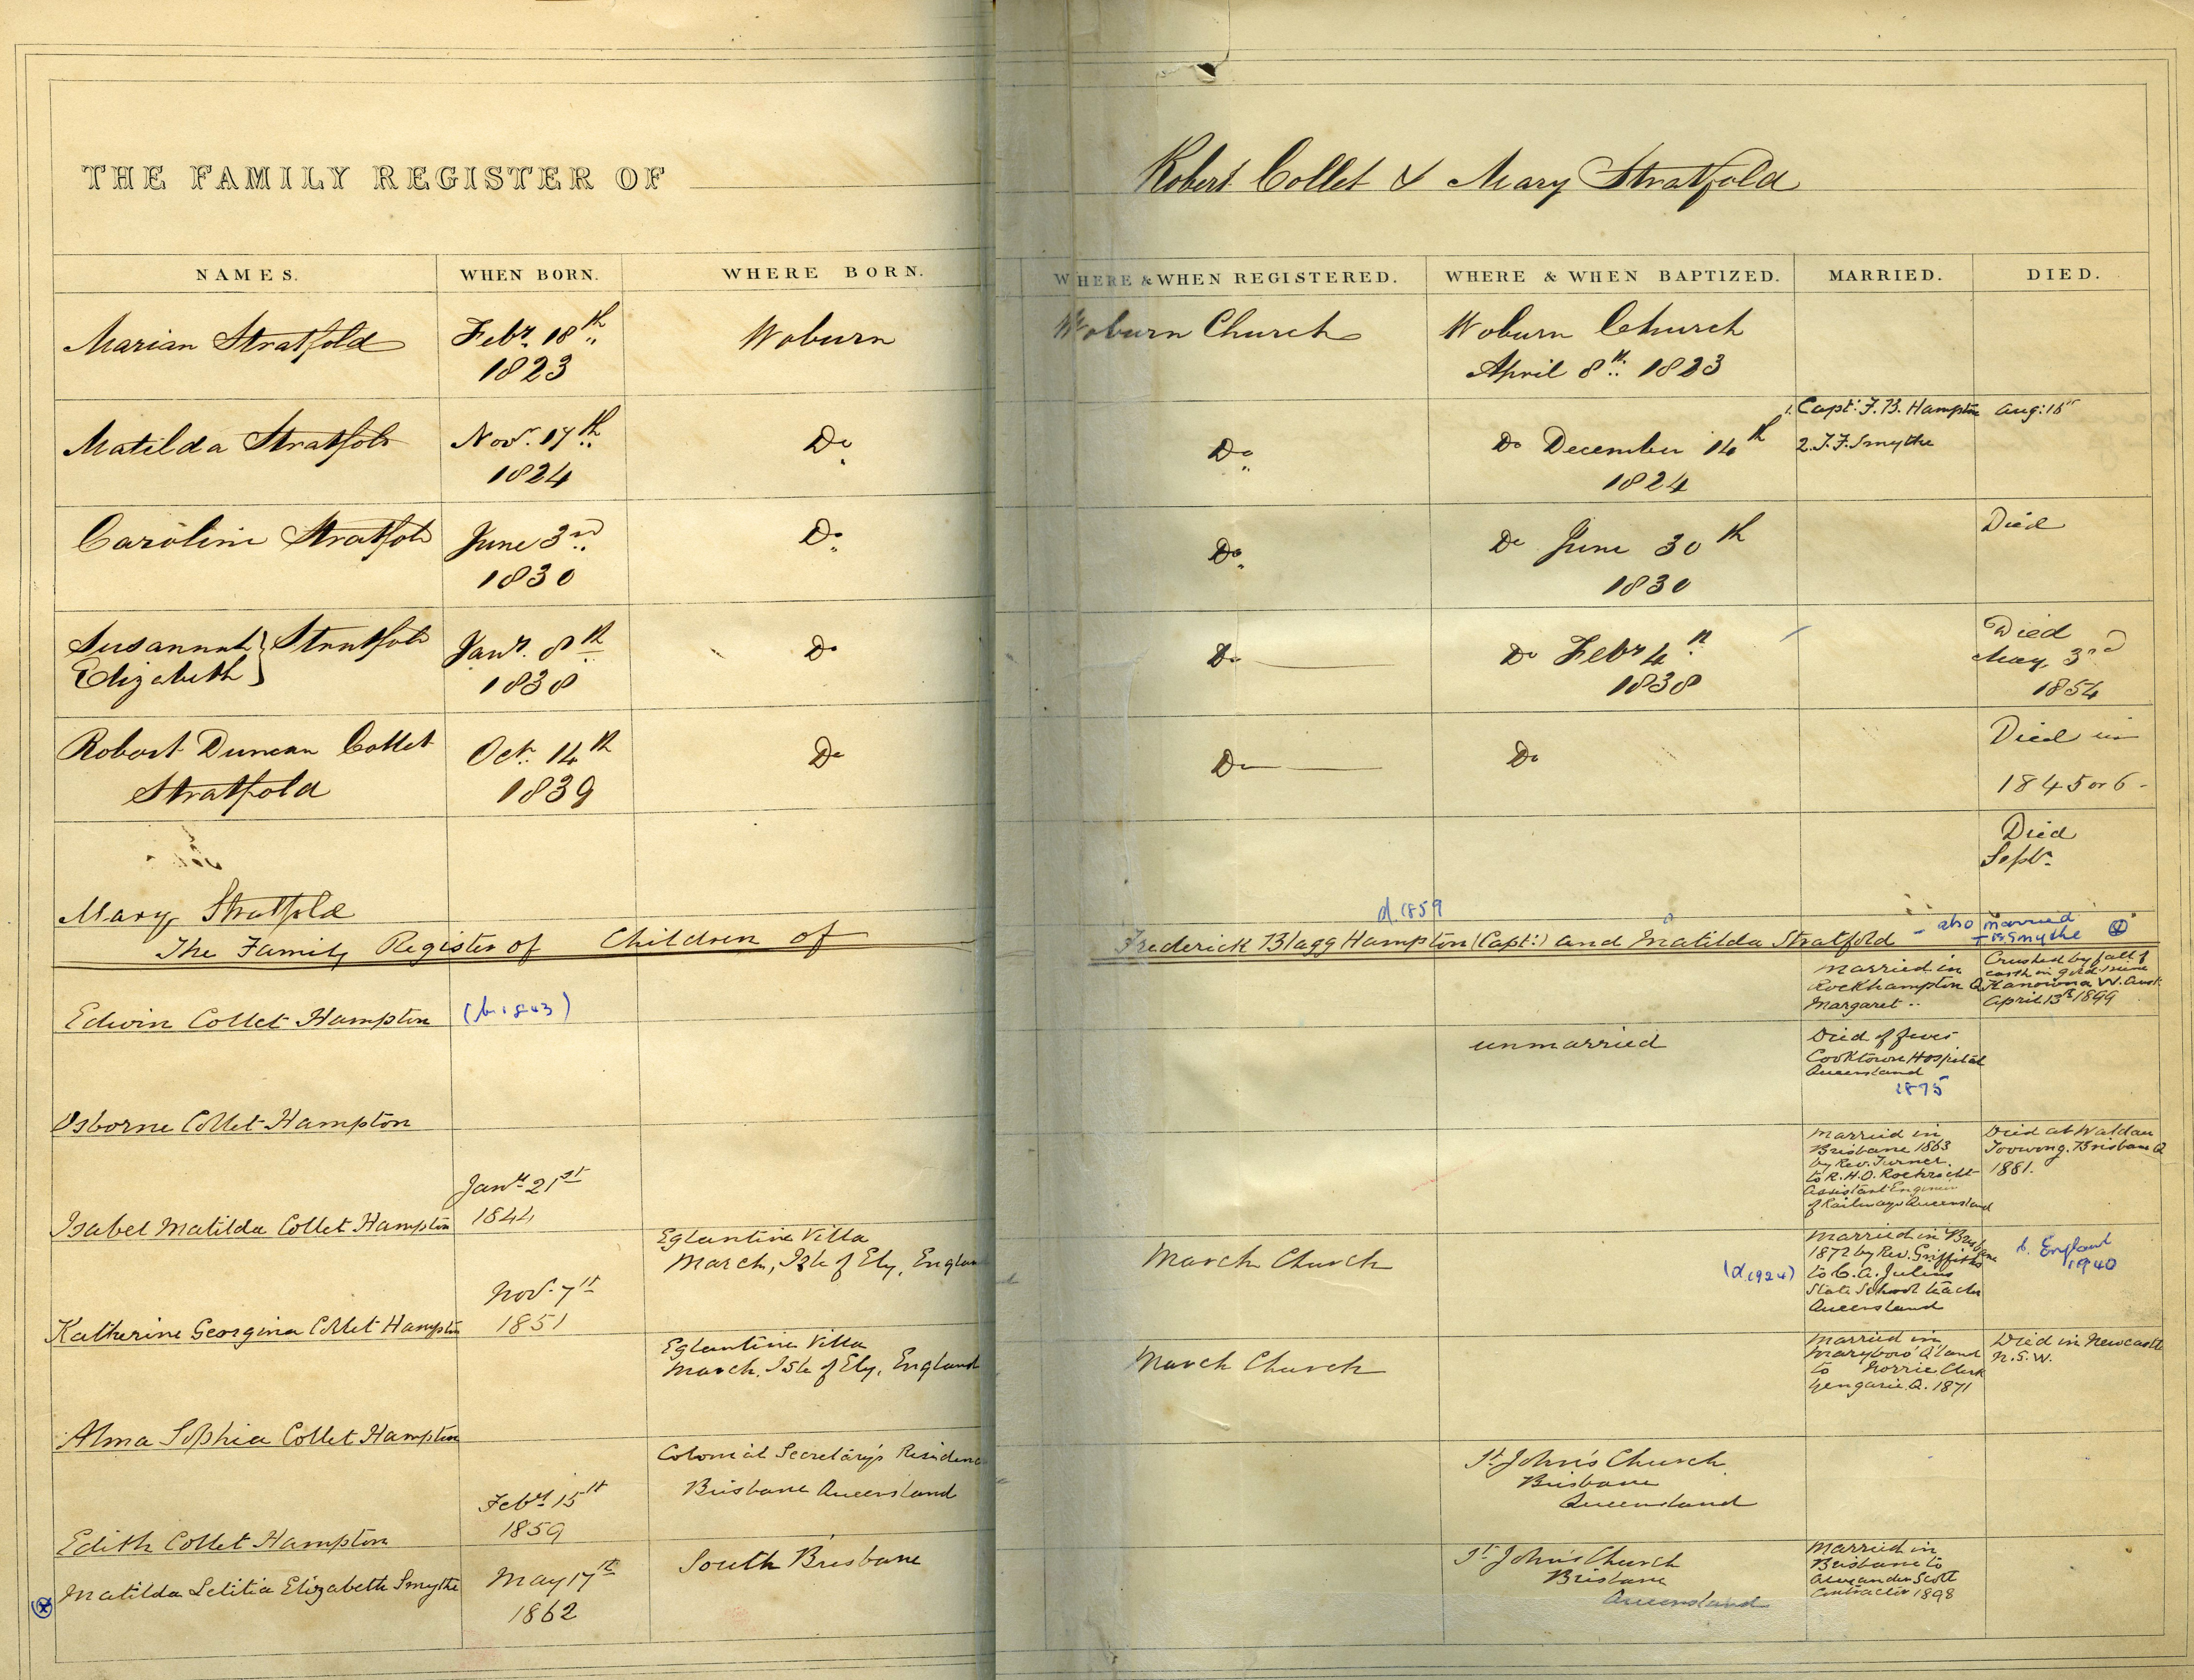 THE FAMILY REGISTER OF Robert Collet & Mary Stratfold
NAMES. WHEN BORN. WHERE BORN. WHERE & WHEN REGISTERED. WHERE & WHEN BAPTIZED. MARRIED. DIED.
Marian Stratfold
Febr. 18th
1823
Woburn
Woburn Church
Woburn Church
April 8th 1823
Matilda Stratfold
Novr. 17th
1824
Do
Do
Do December 14th
1824
1. Capt: F. B. Hampton
2. J. F. Smythe
Aug: 18
Caroline Stratfold
June 3rd
1830
Do
Do
Do June 30th
1830
Died
Susannah } Stratfold
Elizabeth
Janr. 8th
1838
Do
Do
Do Febr 4th
1838
Died
May, 3rd
1854
Robert Duncan Collet
Stratfold
Oct. 14th
1839
Do
Do
Do
Died in
1845 or 6 -
Died
Septr.
Mary Stratfold
d. 1859
The Family Register of Children of Frederick Blagg Hampton (Capt:) and Matilda Stratfold
- also married
Smythe
Edwin Collet Hampton
(b. 1843)
Married in
Rockhampton Q
Margaret ..
Crushed by fall of
earth in gold mine
Kanowna W. Aust.
April 13th 1899
Osborne Collet Hampton
unmarried
Died of fever
Cooktown Hospital
Queensland
1875
Isabel Matilda Collet Hampton
Janr 21st
1844
Married in
Brisbane 1863
by Rev. Turner
to R. H. O.
Assistant Engineer
of Railways Queensland
Died at Waldau
Toowong. Brisbane Q
1881.
Katherine Georgina Collet Hampton
Novr. 7th
1851
Eglantine Villa
March, Isle of Ely, England
March Church
(d. 1924)
Married in Brisbane
1872 by Rev. Griffiths
to C. A. Julius
State School teacher
Queensland
d. England
1940
Alma Sophia Collet Hampton
Eglantine Villa
March, Isle of Ely, England
March Church
Married in
Maryboro' Q'land
to Norrie Clark
Yengarie. Q. 1871
Died in Newcastle
N. S. W.
Edith Collet Hampton
Febry 15th
1859
Colonial Secretary's Residence
Brisbane Queensland
St. John's Church
Brisbane
Queensland
Matilda Letitia Elizabeth Smythe
May 17th
1862
South Brisbane
St. John's Church
Brisbane
Queensland
Married in
Brisbane to
Alexander Scott
Contractor 1898